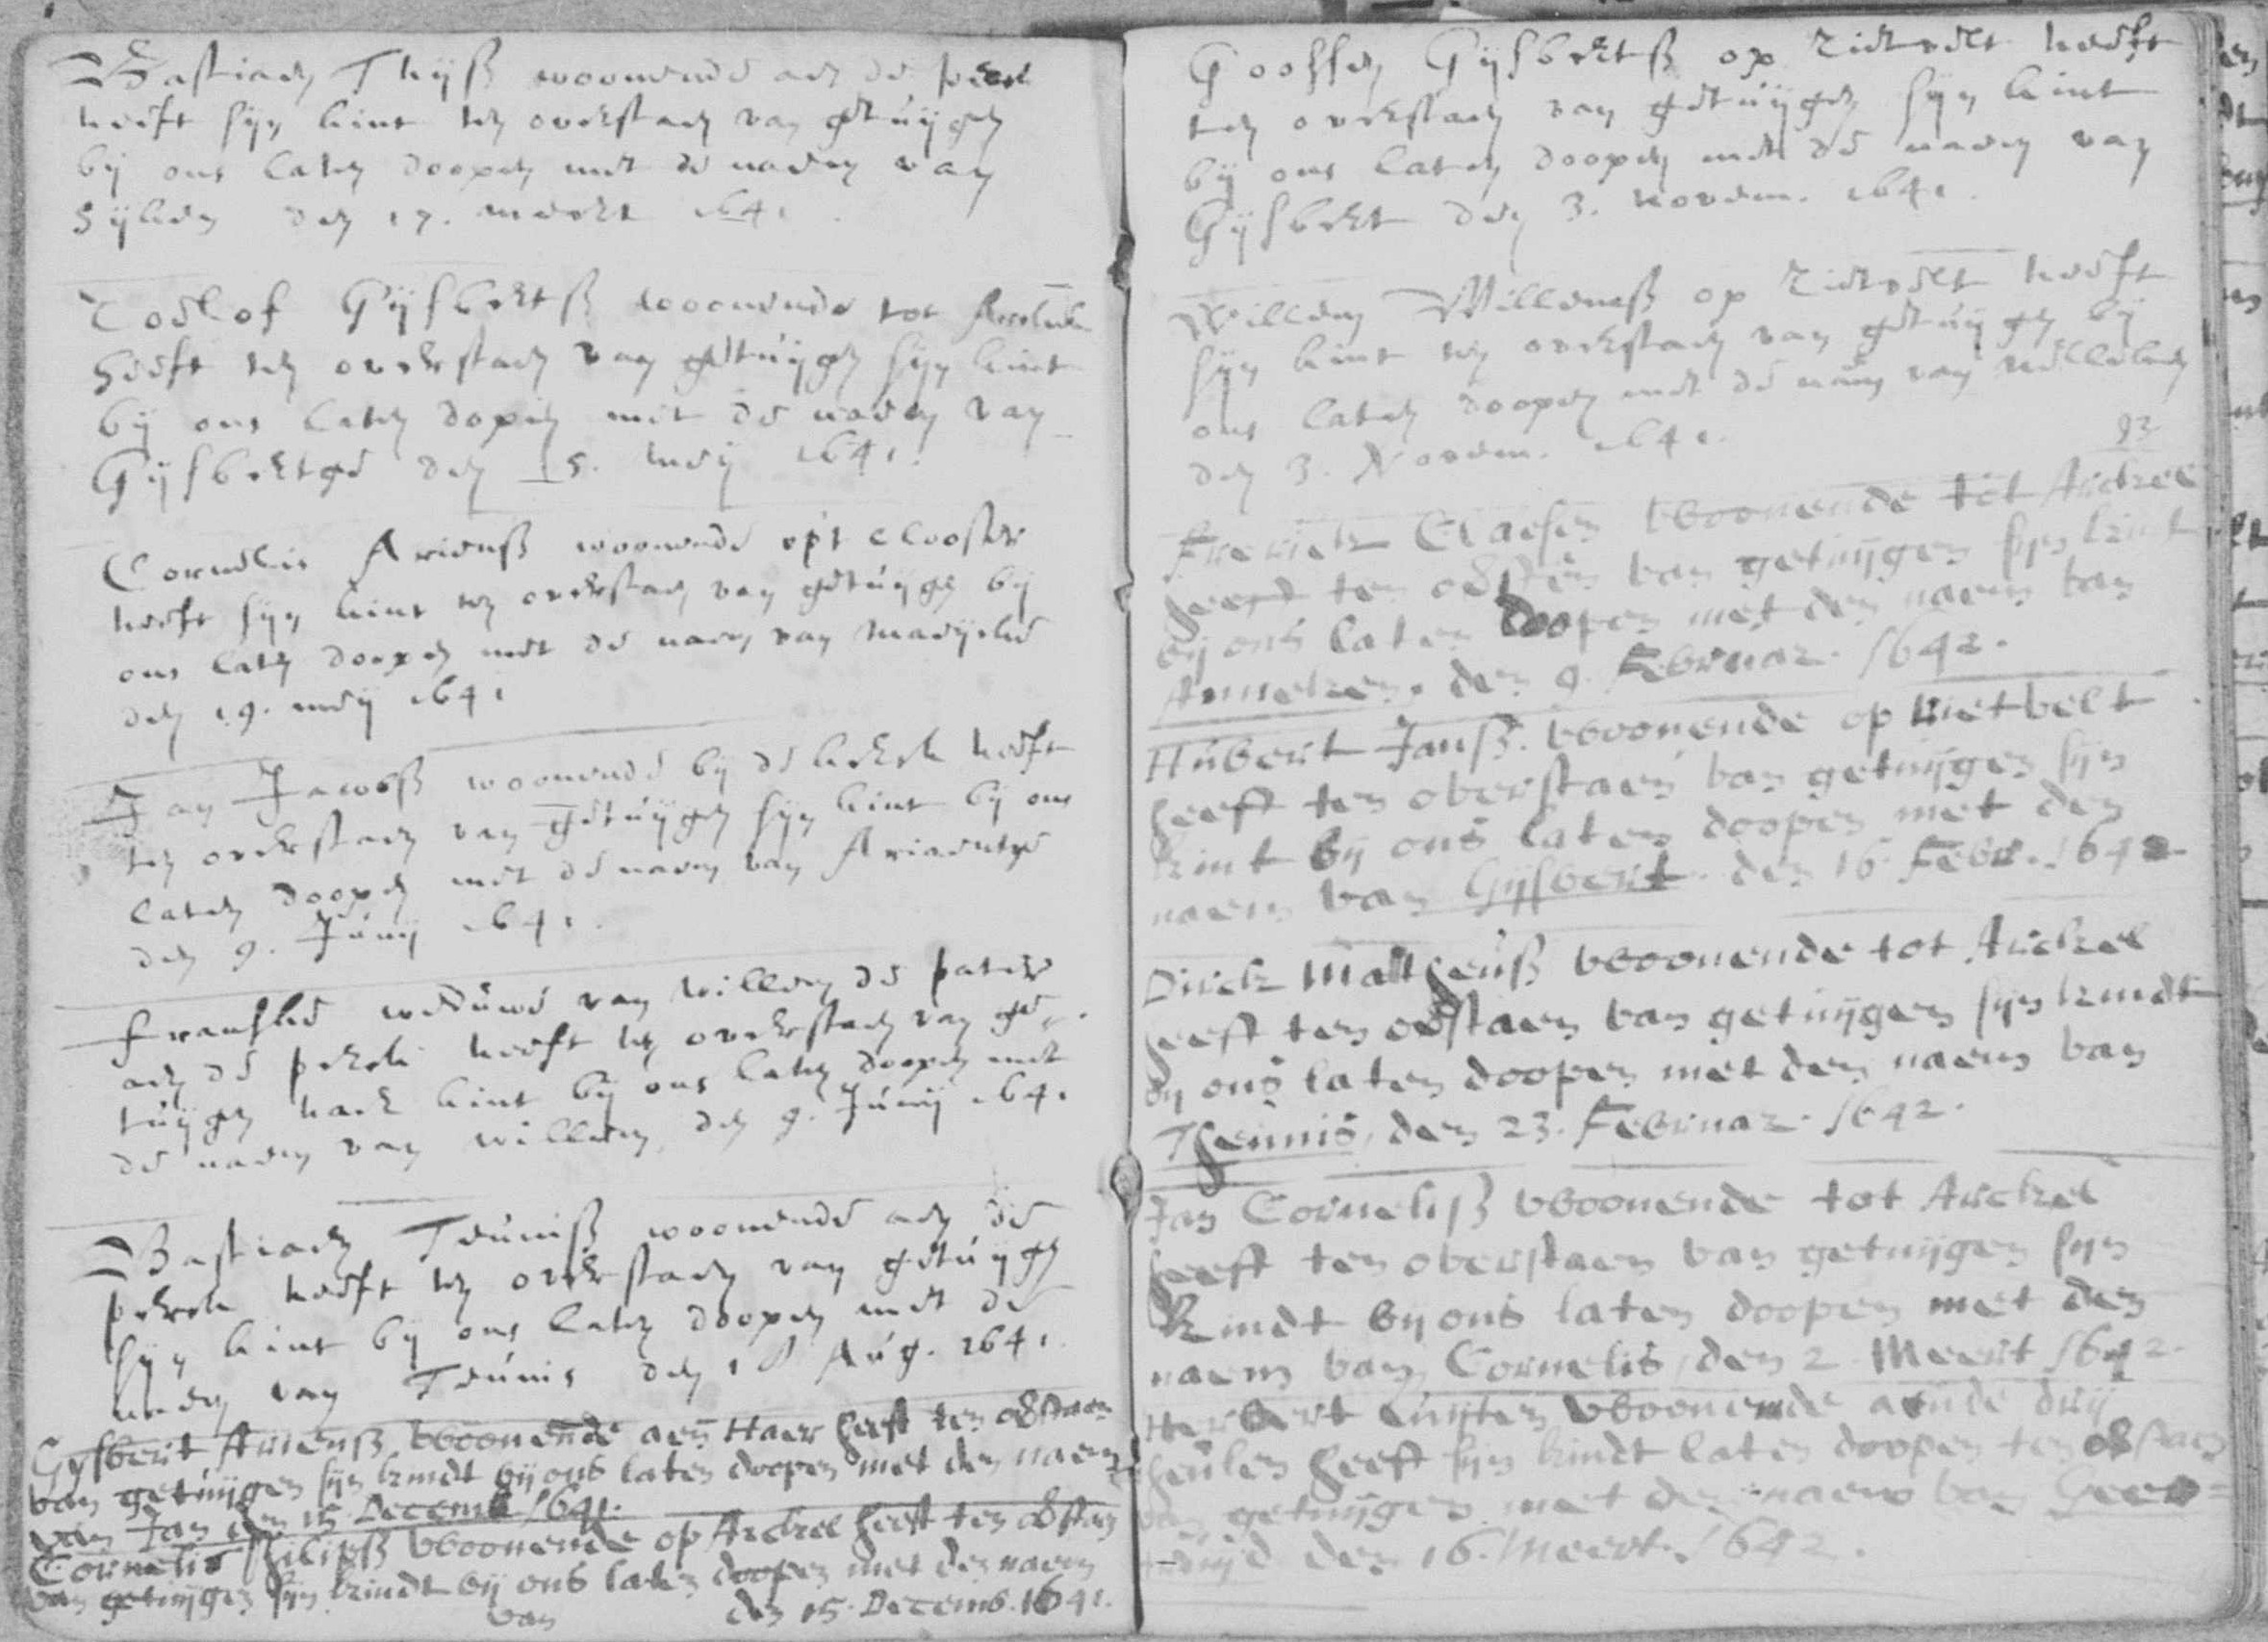 Bastiaen Thijss woonende aen de perck
heeft sijn kint ten overstaen van getuijgen
bij ons laten doopen met de naem van
Sijken den 17. meert 1641.
Roelof Gijsbertss woonende tot Arckel
heeft ten overstaen van getuijgen sijn kint
bij ons laten dopen met de naem van
Gijsbertge den 15. meij 1641.
Cornelis Arienss woonende opt clooster
heeft sijn kint ten overstaen van getuijgen bij
ons laten doopen met de naem van Marijcke
den 19. meij 1641
Jan Jacobss woonende bij de kerck heeft
ten overstaen van getuijgen sijn kint bij ons
laten doopen met de naem van Ariaentge
den 9. Junij 1641.
franske weduwe van Willem de pater
aen de perck heeft ten overstaen van ge
tuijgen haer kint bij ons laten doopen met
de naem van Willem, den 9. Junij 1641
Bastiaen Teuniss woonende aen de
perck heeft ten overstaen van getuijgen
sijn kint bij ons laten doopen met de
naem van Teunis den 18 Aug. 1641.
Gysbert Arienss woonende aen Haer heeft ten overstaen
van getuijgen sijn kindt bij ons laten doopen met den naem
van Jan den 15 Decemb 1641.
Cornelis Philipss woonende op Arckel heeft ten overstaen
van getuijgen sijn kindt bij ons laten doopen met den naem
van den 15. Decemb. 1641.
Goossen Gijsbertss op Rietvelt heeft
ten overstaen van getuijgen sijn kint
bij ons laten doopen met de naem van
Gijsbert den 3. Novem. 1641.
Willem Willemss op Rietvelt heeft
sijn kint ten overstaen van getuijgen bij
ons laten doopen met de naem van Willeken
den 3. Novem. 1641.
93
Frerick Claesen woonende tot Arckel
heeft ten overstaen van getuijgen sijn kint
bij ons laten doopen met den naem van
Anneken. den 9. Februar. 1642.
Hubert Janss. woonende op Rietvelt
heeft ten overstaen van getuijgen sijn
kint bij ons laten doopen met den
naem van Gijsbert. den 16. Febr. 1642
Dirck Mattheuss woonende tot Arckel
heeft ten overstaen van getuijgen sijn kindt
bij ons laten doopen met den naem van
Theunis, den 23. Februar. 1642.
Jan Corneliss woonende tot Arckel
heeft ten overstaen van getuijgen sijn
kindt bij ons laten doopen met den
naem van Cornelis, den 2 Meert 1642.
Herbert woonende aende drij
heulen heeft sijn kindt laten doopen ten overstaen
van getuijgen met den naem van Geer=
truijd den 16. Meert. 1642.